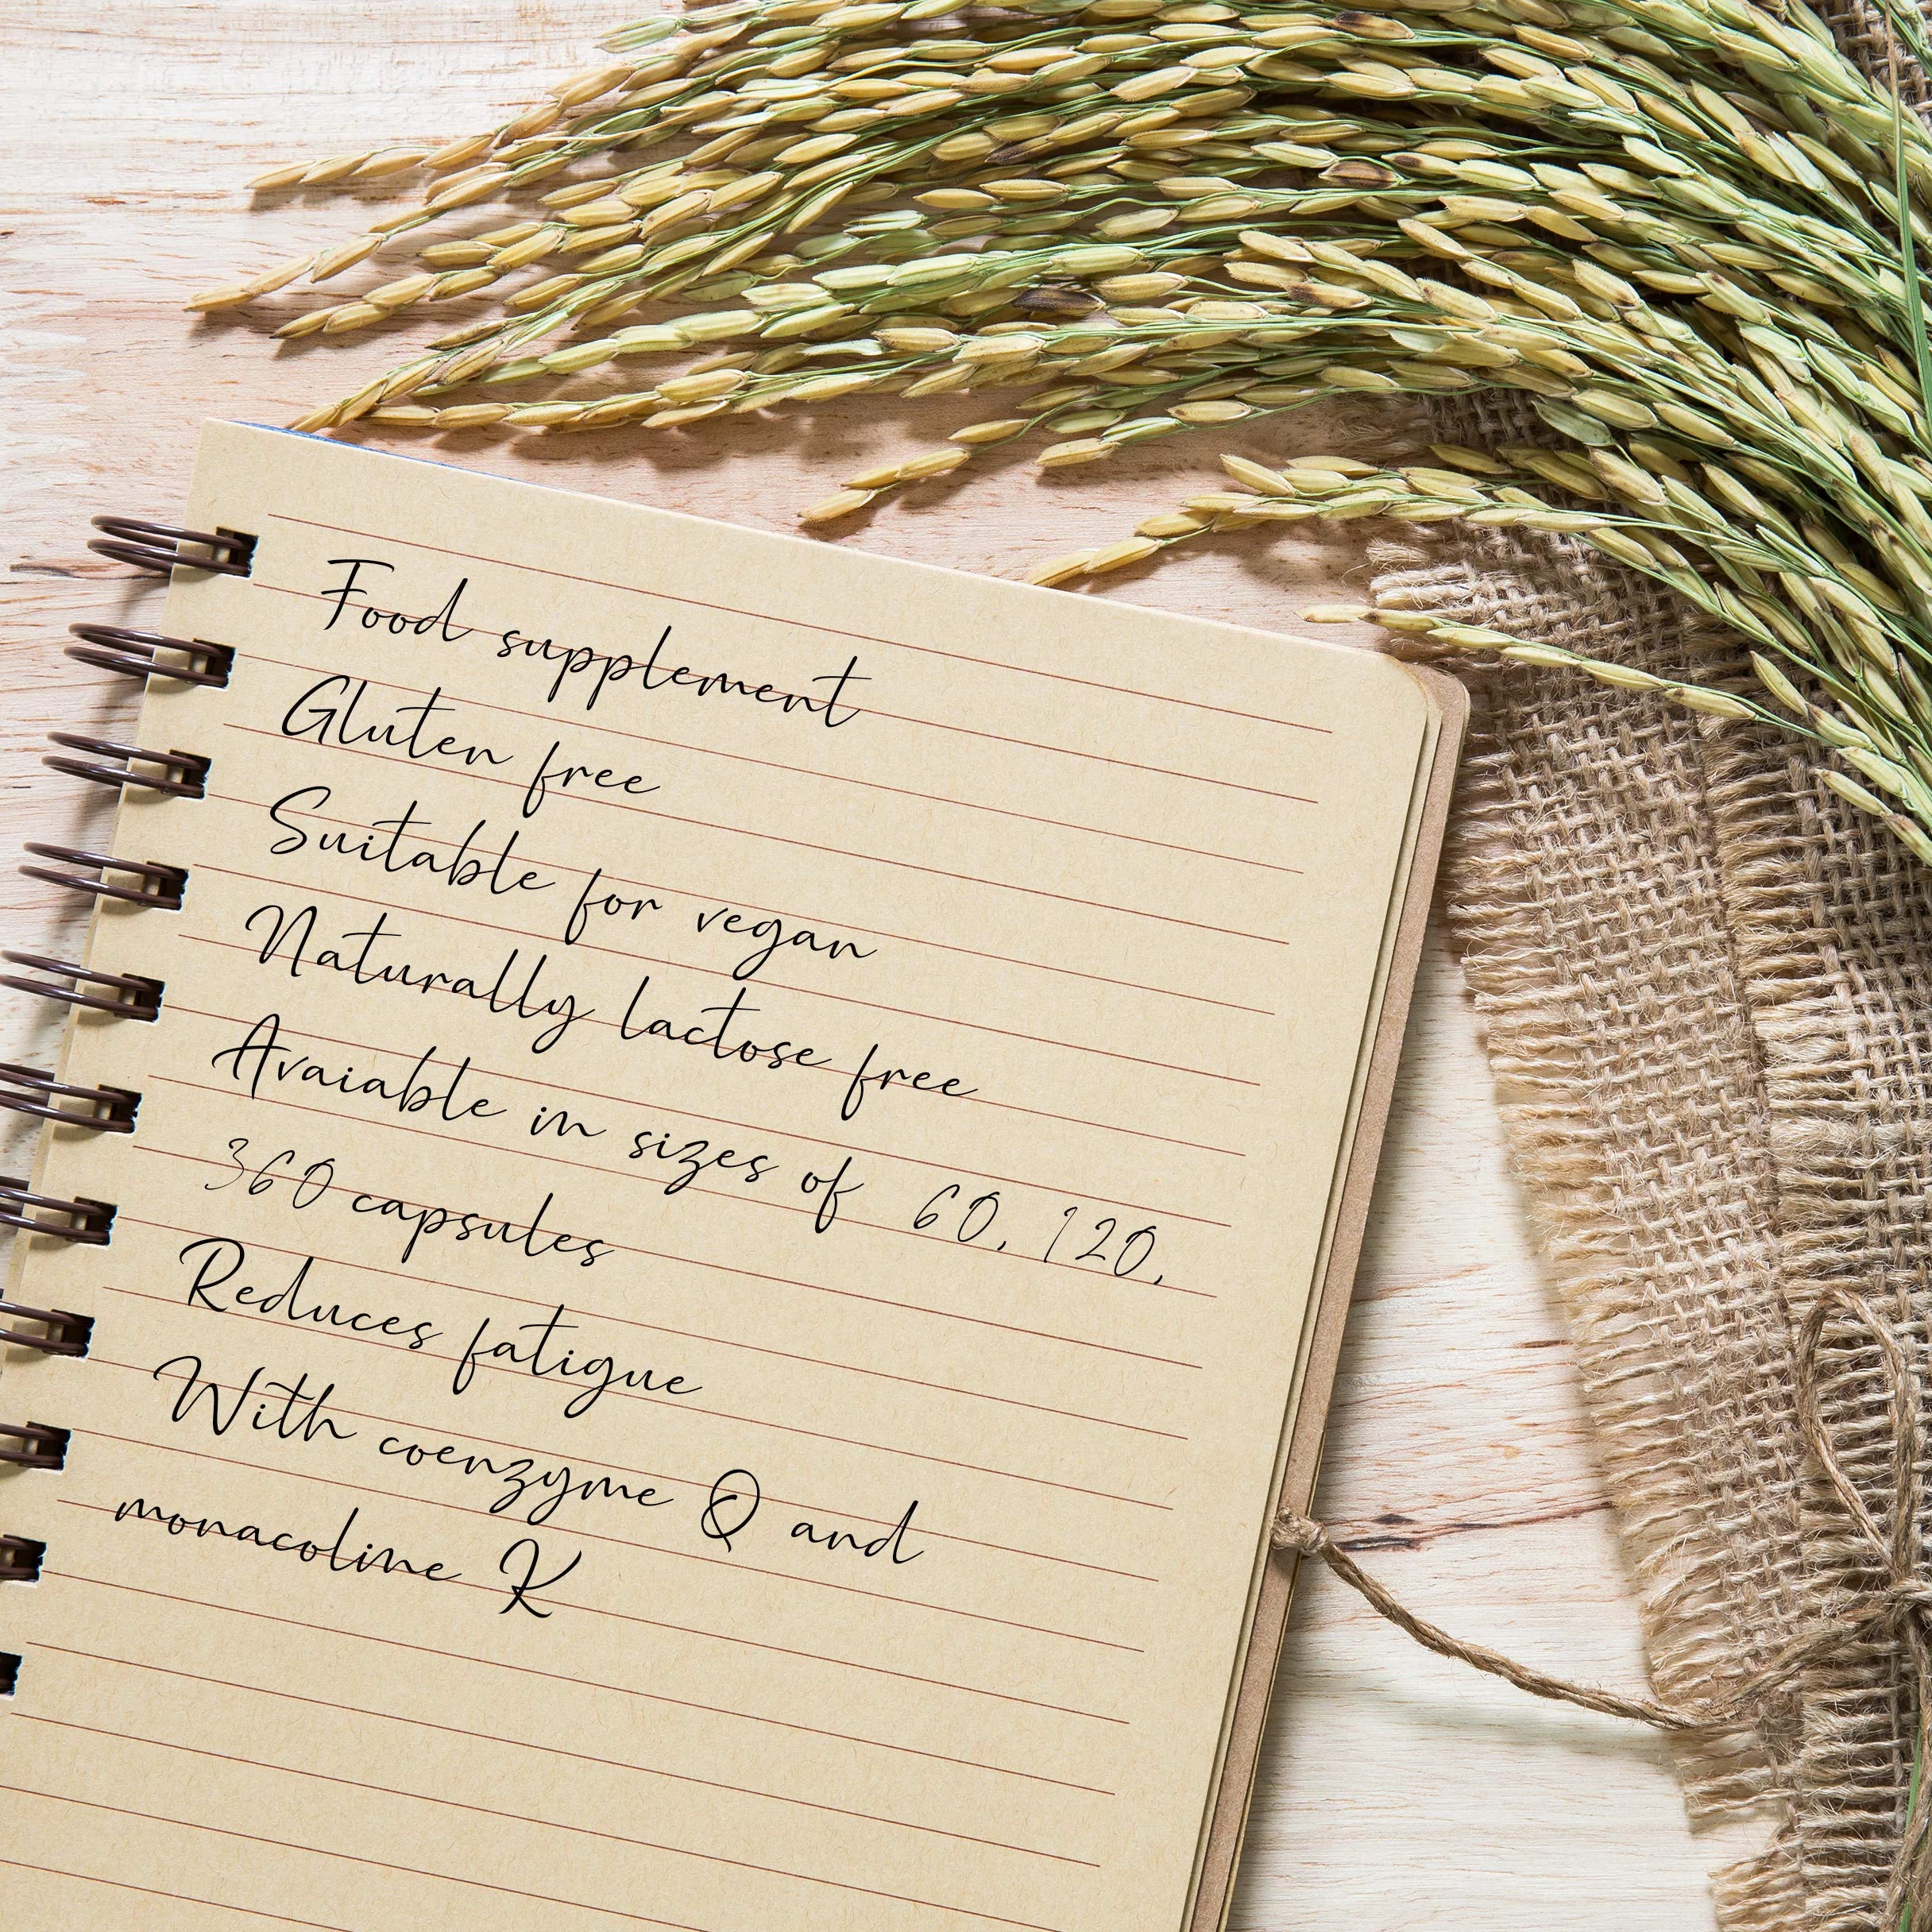 Food supplement
Gluten free
Suitable for vegan
Naturally lactose free
Avaiable in sizes of 60, 120,
360 capsules
Reduces fatigue
With coenzyme Q and
monacoline K